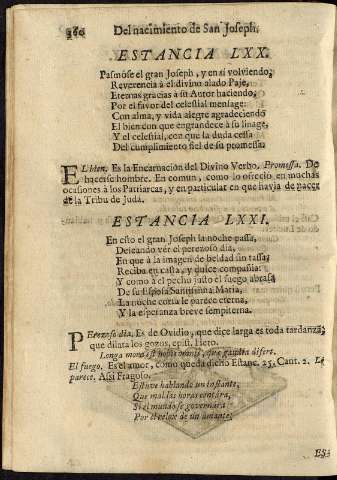 360 Del nacimiento de San Joseph.
ESTANCIA LXX.
Pasmóse el gran Joseph, y en sí volviendo,
Reverencia à el divino alado Paje,
Eternas gracias à su Autor haciendo,
Por el favor del celestial mensage:
Con alma, y vida alegre agradeciendo
El bien con que engrandece à su linage,
Y el celestial, con que la duda cessa
Del cumplimiento fiel de su promessa.
EL bien. Es la Encarnacion del Divino Verbo. Promessa. De
hacerse hombre. En comun, como lo ofreciò en muchas
ocasiones à los Patriarcas, y en particular en que havia de nacer
de la Tribu de Juda.
ESTANCIA LXXI.
En esto el gran Joseph la noche passa,
Deseando vèr el perezoso dia,
En que à la imagen de beldad sin tassa,
Reciba en casa, y dulce compañia:
Y como à el pecho justo el fuego abrasa
De su Esposa Santissima Maria,
La noche corta le parece eterna,
Y la esperanza breve sempiterna.
PErezoso dia. Es de Ovidio, que dice larga es toda tardanza,
que dilata los gozos, epist. Hero.
Longa mora est nobis omnis, que gaudia differt.
El fuego. Es el amor, como queda dicho Estanc. 25. Cant. 2. Le
parece. Assi Fragoso.
Estuve hablando un instante,
Que mal las horas contára,
Si el mundo se governára
Por el relox de un amante;